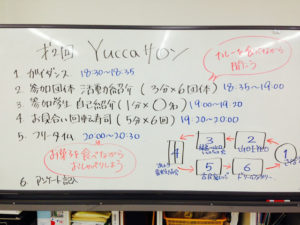 Yuccaサロン
1 ガイダンス 18:30~18:35
2 参加団体 活動紹介 (3分×6団体) 18:35~19:00
カレーを食べながら
聞こう
3 参加学生 自己紹介 (1分×〇名) 19:00~19:20
4 お見合い回転 (5分×6回) 19:20~20:00
5 フリータイム 20:00~20:30
お菓子を食べながら
おしゃべりしよう
6 アンケート記入
3 2
4 1
5 6